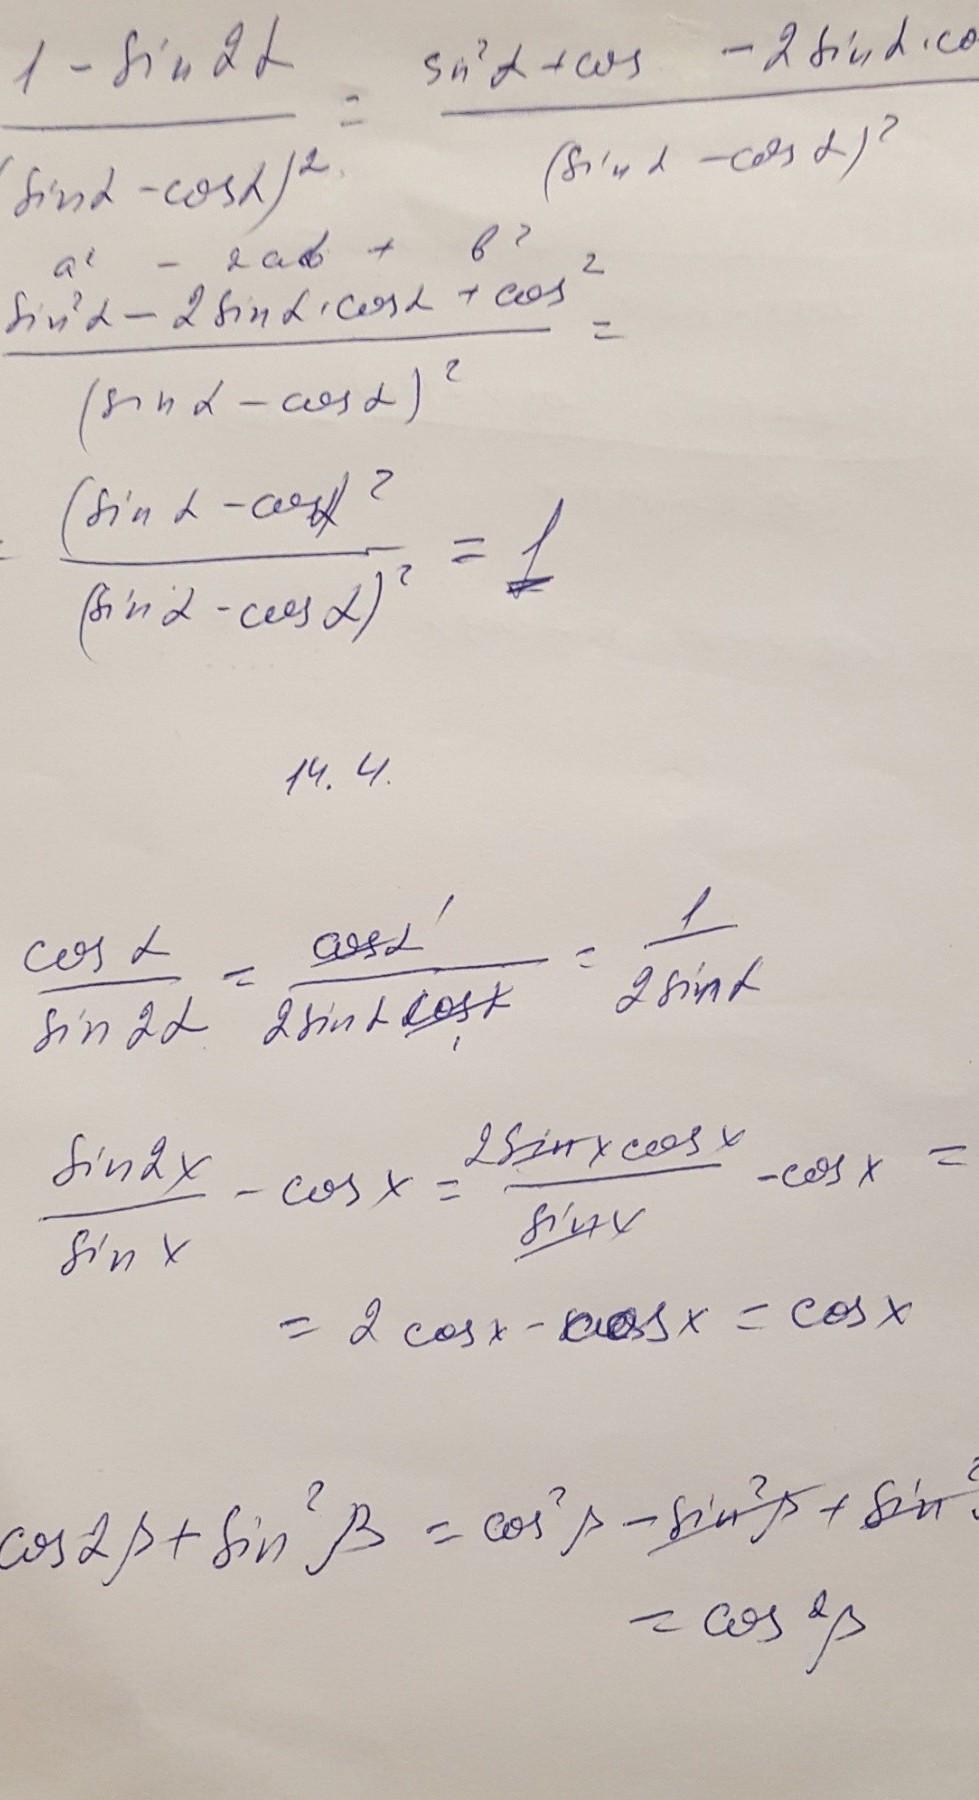 1 - sin2α / (sinα - cosα)² = sin²α + cos - 2sinα·co / (sinα - cosα)²
a² - 2ab + b²
sin²α - 2sinα·cosα + cos² / (sinα - cosα)² =
= (sinα - cosα)² / (sinα - cosα)² = 1
14.4.
cosα / sin2α = cosα 1 / 2sinα cosα 1 = 1 / 2sinα
sin2x / sinx - cosx = 2sinxcosx / sinx - cosx =
= 2cosx - cosx = cosx
cos2β + sin²β = cos²β - sin²β + sin²
= cos²β